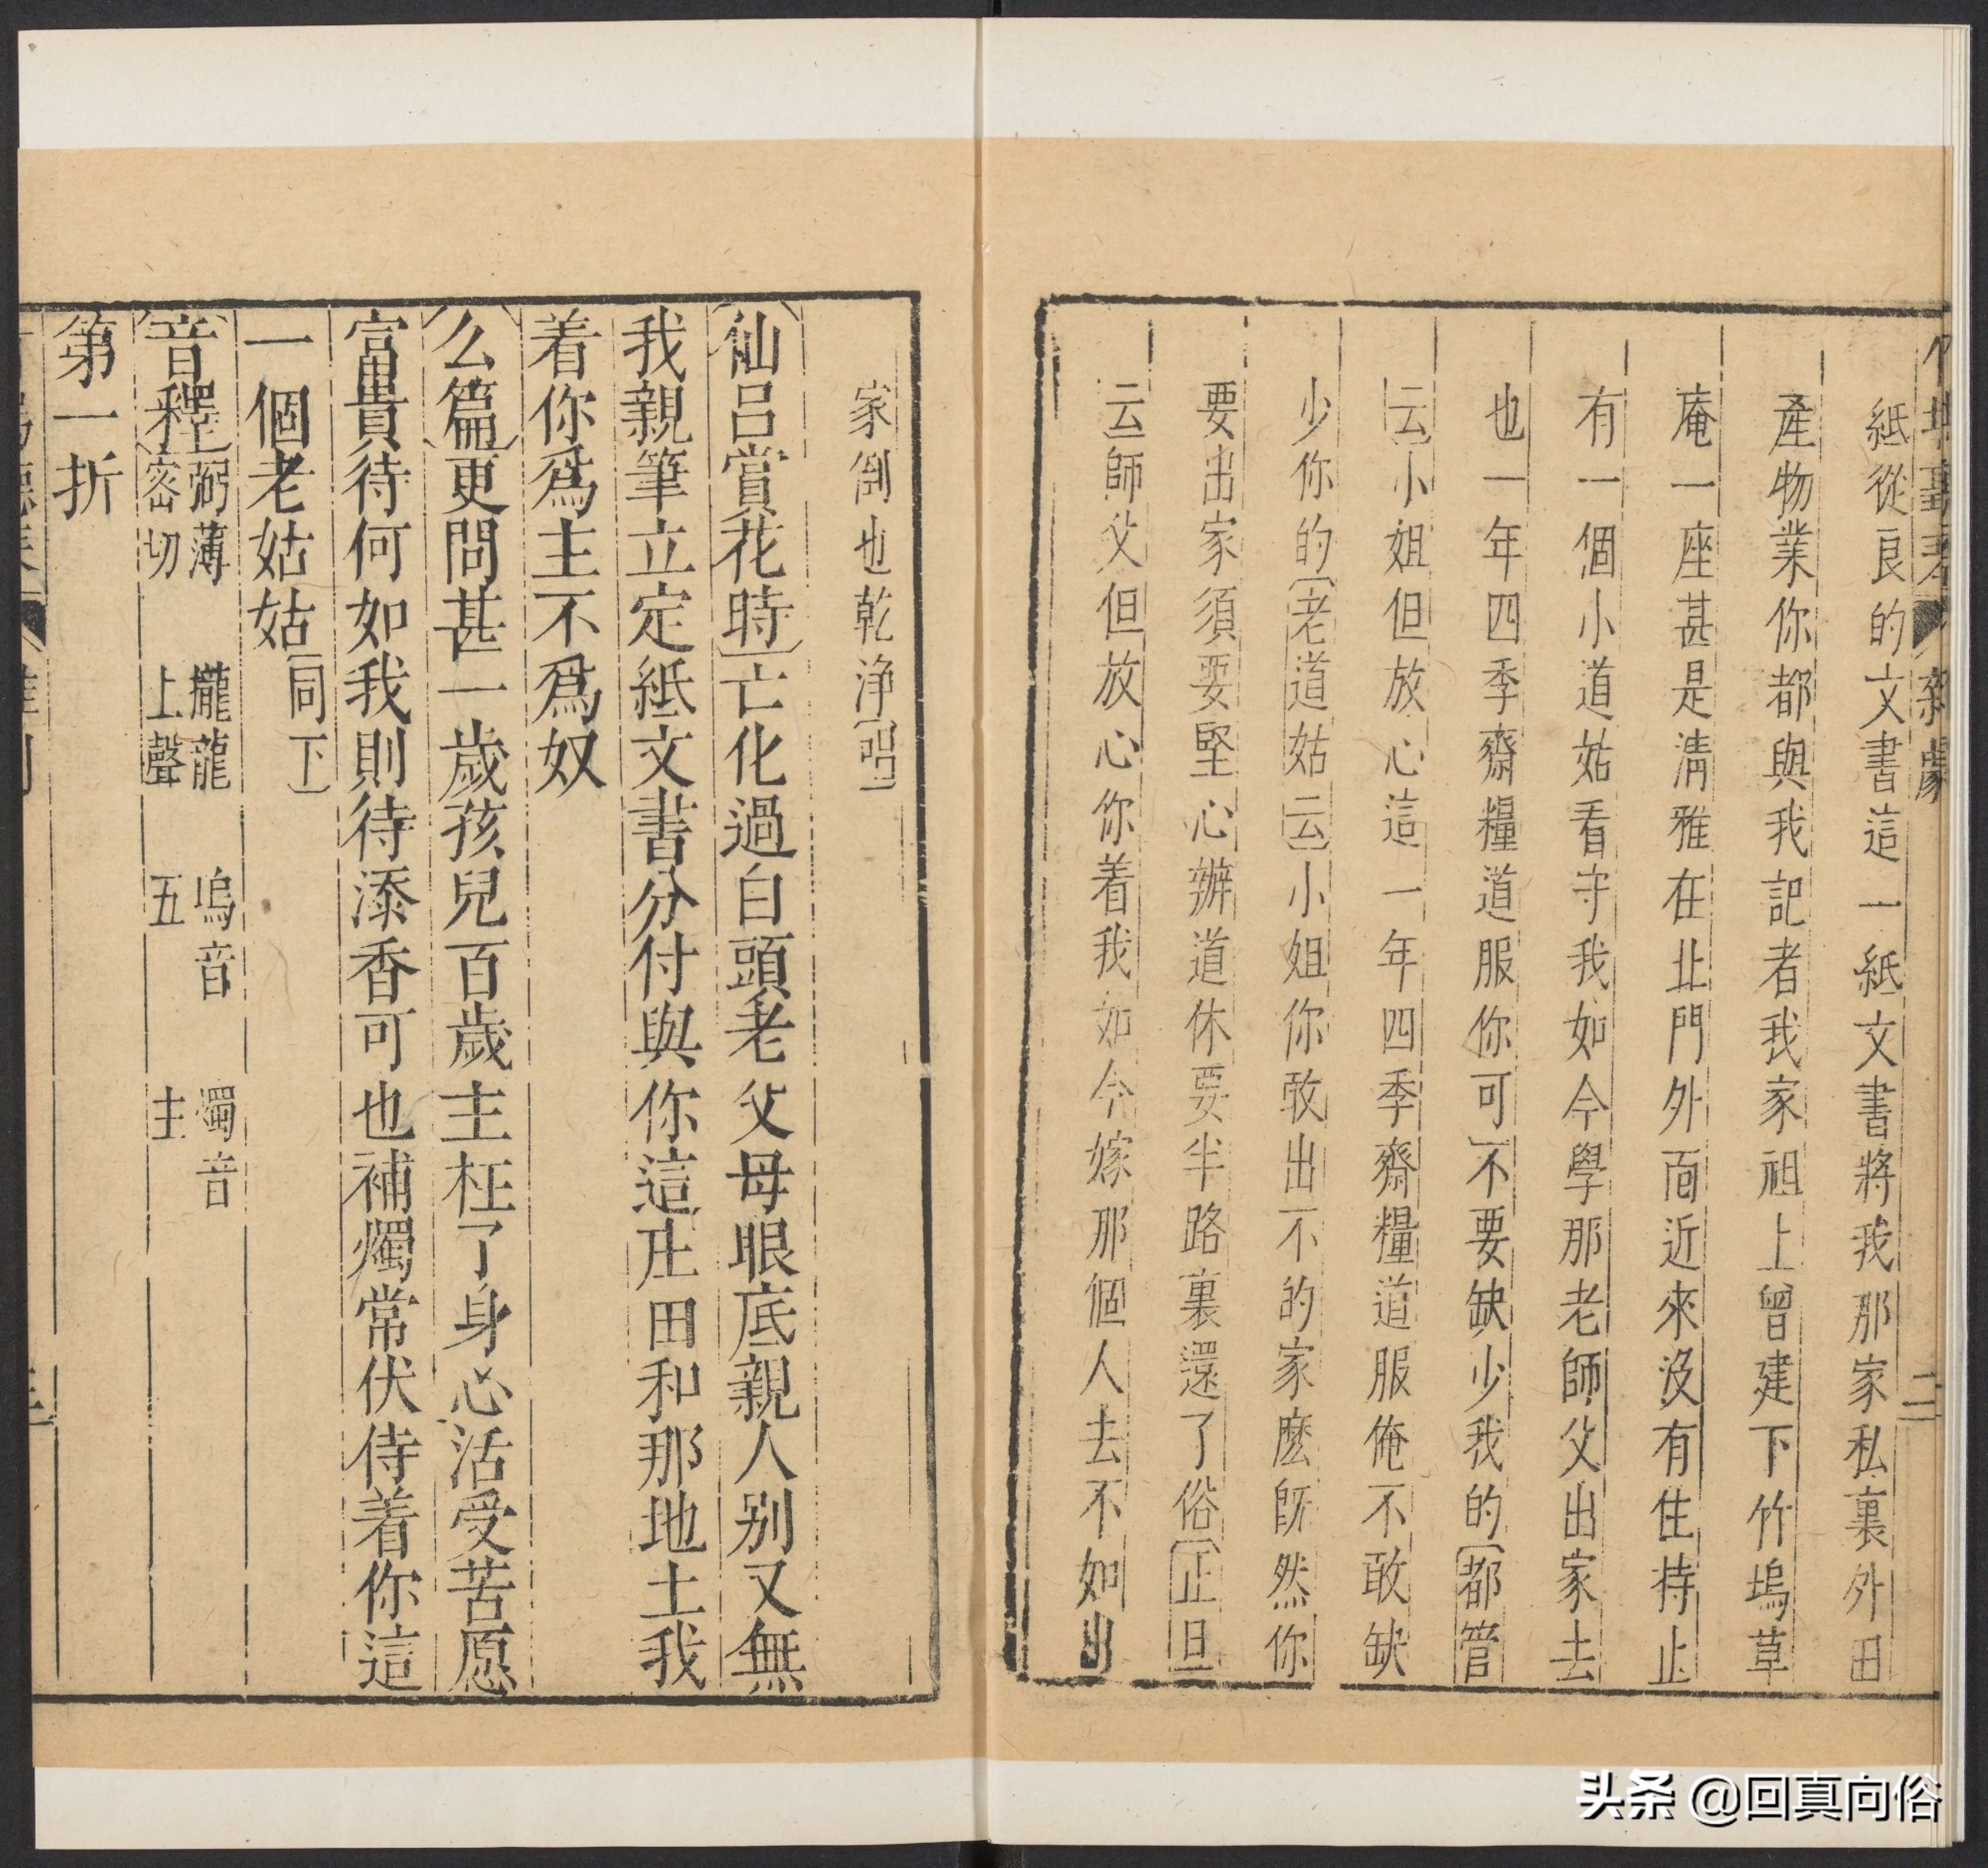 紙從良的文書這一紙文書將我那家私裏外田
產物業你都與我記者我家祖上曾建下竹塢草
庵一座甚是清雅在北門外面近來沒有住持止
有一個小道姑看守我如今學那老師父出家去
也一年四季齋糧道服你可不要缺少我的〔都管
云〕小姐但放心這一年四季齋糧道服俺不敢缺
少你的〔老道姑云〕小姐你敢出不的家麽旣然你
要出家須要堅心辦道休要半路裏還了俗〔正旦
云〕師父但放心你着我如今嫁那個人去不如出
家倒也乾淨〔唱〕
〔仙吕賞花時〕亡化過白頭老父母眼底親人别又無
我親筆立定紙文書分付與你這庄田和那地土我
着你爲主不爲奴
〔么篇〕更問甚一歲孩兒百歲主枉了身心活受苦愿
富貴待何如我則待添香可也補燭常伏侍着你這
一個老姑姑〔同下〕
〔音釋〕弼薄密切 攏龍上聲 塢音五 燭音主
第一折
头条 @回真向俗